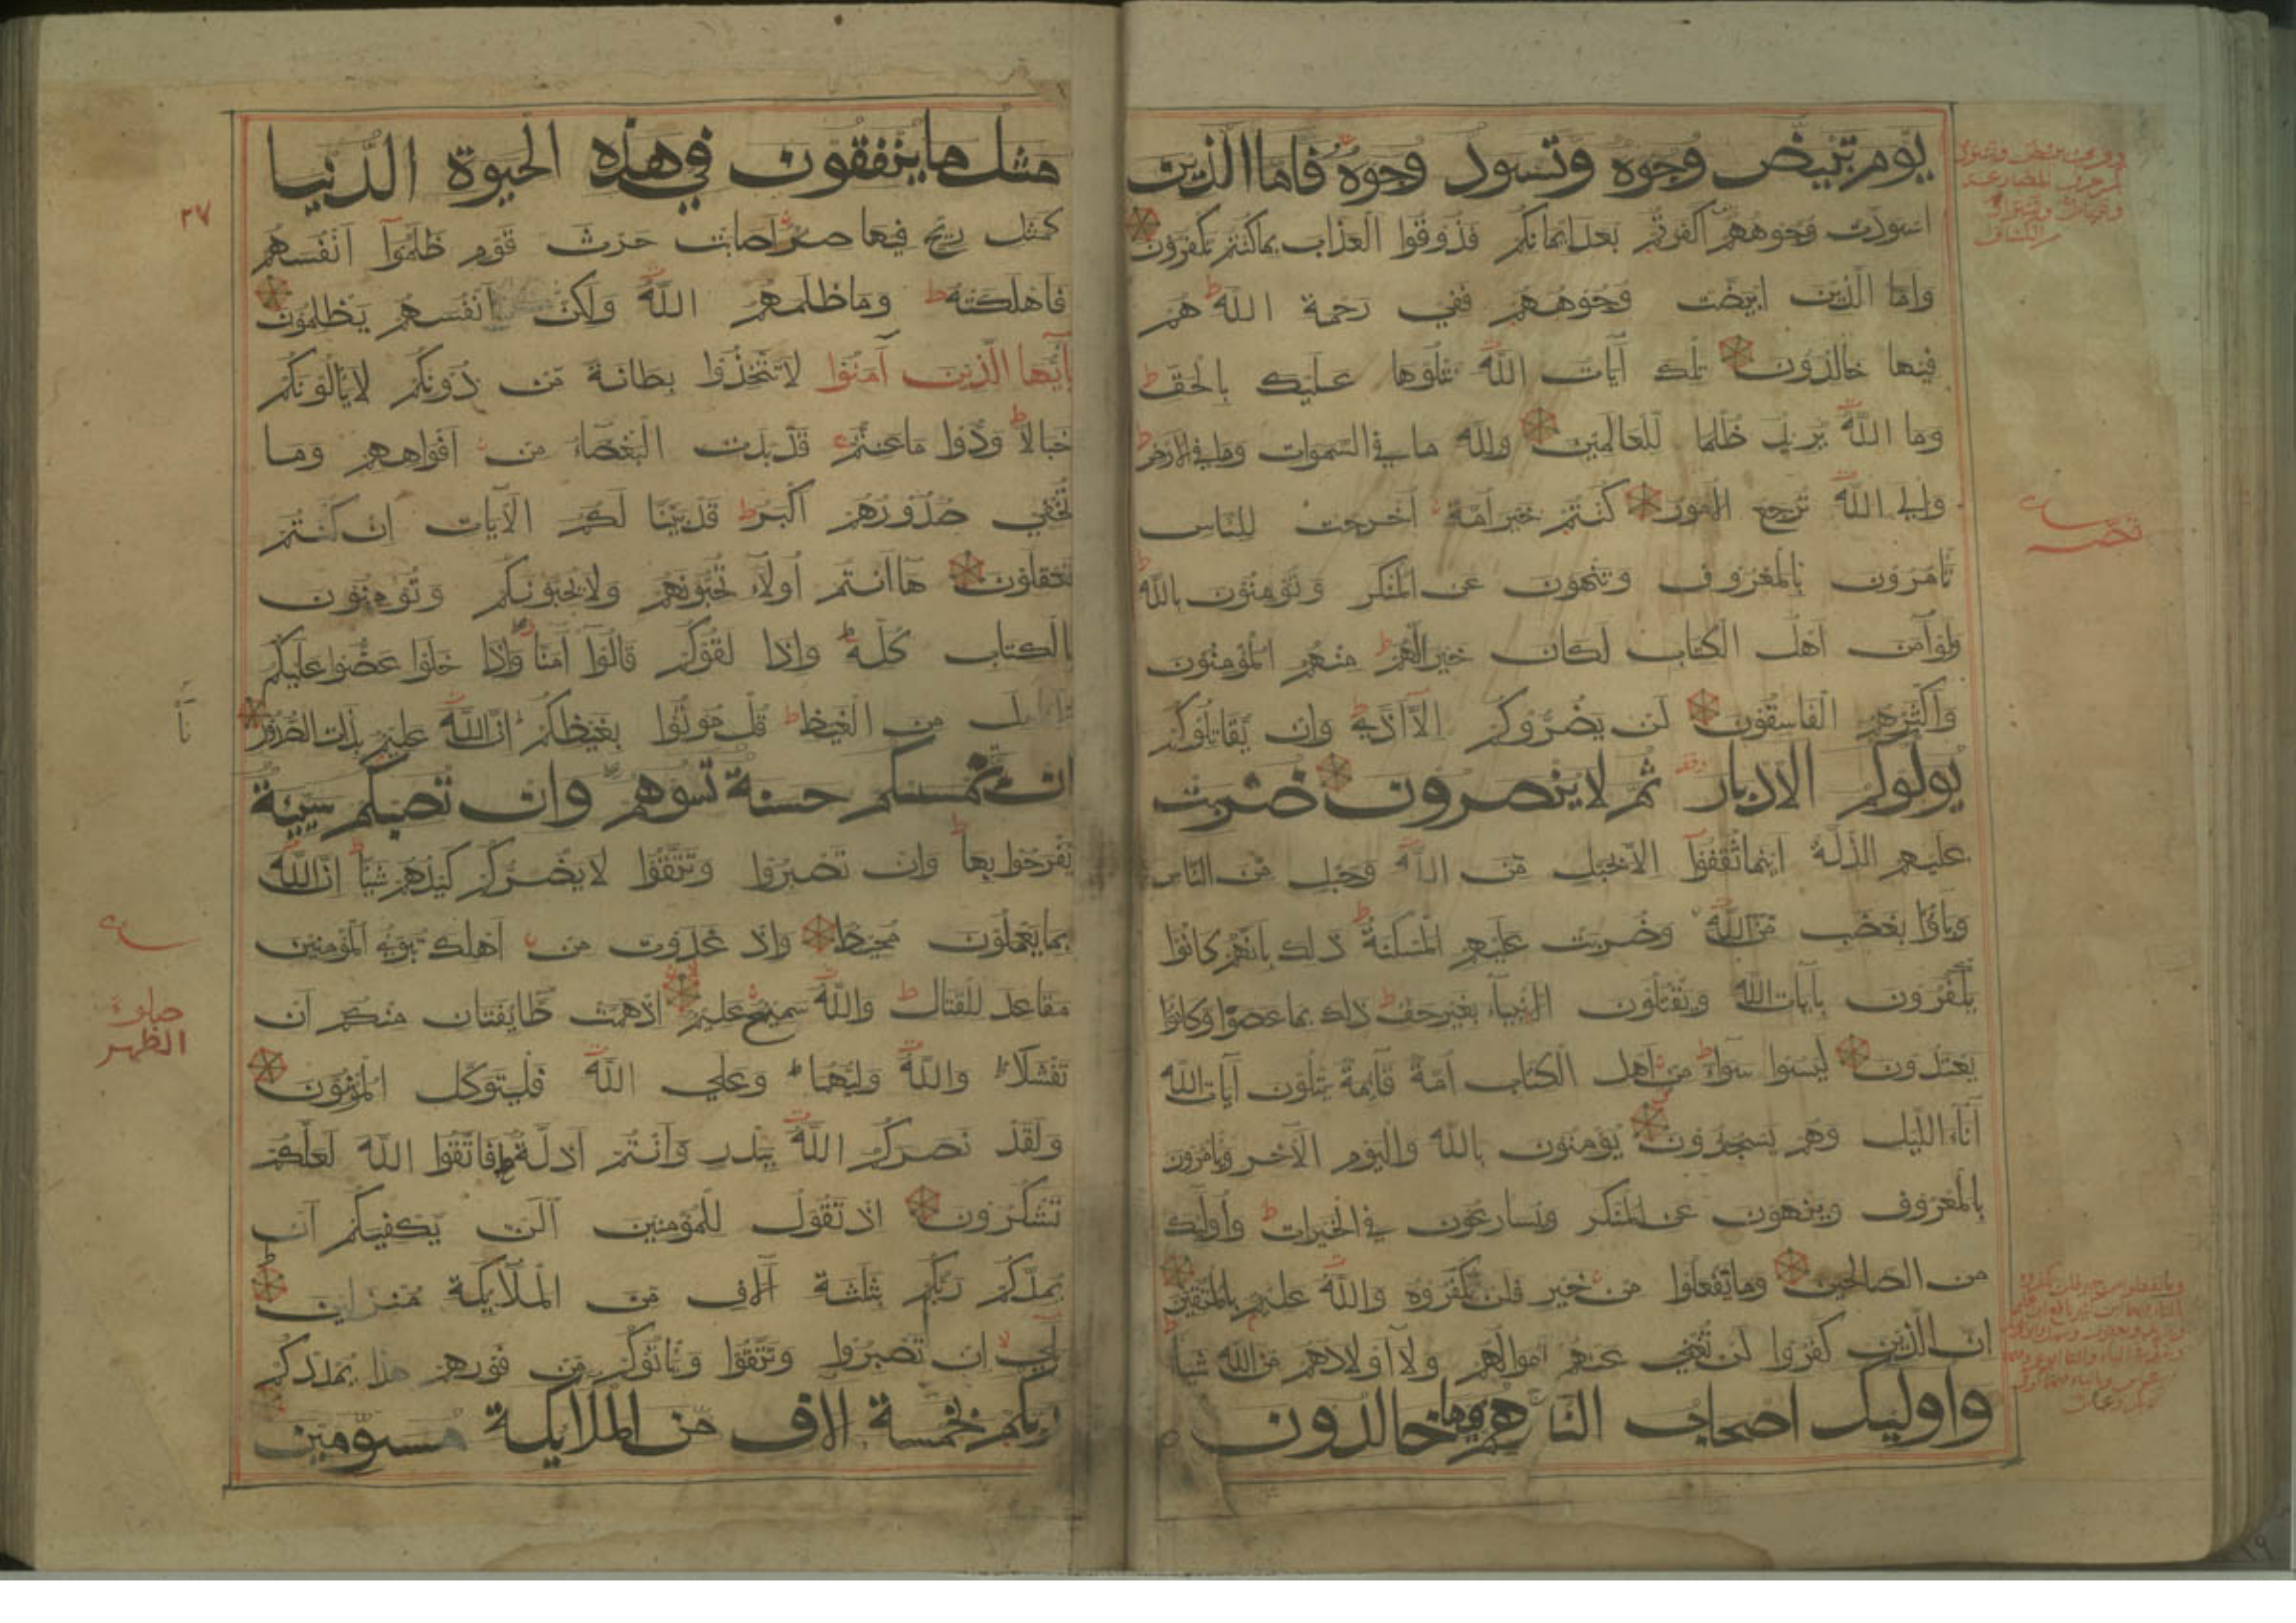 يوم تبيض وجوه وتسود وجوه فاما الذين
اسودت وجوههم اكفرتم بعد ايمانكم فذوقوا العذاب بما كنتم تكفرون
واما الذين ابيضت وجوههم ففي رحمة الله هم
فيها خالدون تلك آيات الله نتلوها عليك بالحق
وما الله يريد ظلما للعالمين ولله ما في السموات وما في الارض
والي الله ترجع الامور كنتم خير امة اخرجت للناس
تامرون بالمعروف وتنهون عن المنكر وتؤمنون بالله
ولو آمن اهل الكتاب لكان خيرا لهم منهم المؤمنون
واكثرهم الفاسقون لن يضروكم الا اذي وان يقاتلوكم
يولوكم الادبار ثم لا ينصرون ضربت
عليهم الذلة اينما ثقفوا الا بحبل من الله وحبل من الناس
وباؤا بغضب من الله وضربت عليهم المسكنة ذلك بانهم كانوا
يكفرون بآيات الله ويقتلون الانبياء بغير حق ذلك بما عصوا وكانوا
يعتدون ليسوا سواء من اهل الكتاب امة قايمة يتلون آيات الله
آناء الليل وهم يسجدون يؤمنون بالله واليوم الآخر ويامرون
بالمعروف وينهون عن المنكر ويسارعون في الخيرات واوليك
من الصالحين وما تفعلوا من خير فلن تكفروه والله عليم بالمتقين
ان الذين كفروا لن تغني عنهم اموالهم ولا اولادهم من الله شيا
واوليك اصحاب النار هم فيها خالدون
مثل ما ينفقون في هذه الحيوة الدنيا
كمثل ريح فيها صر اصابت حرث قوم ظلموا انفسهم
فاهلكته وما ظلمهم الله ولكن انفسهم يظلمون
يا ايها الذين آمنوا لا تتخذوا بطانة من دونكم لا يالونكم
خبالا ودوا ما عنتم قد بدت البغضاء من افواههم وما
تخفي صدورهم اكبر قد بينا لكم الآيات ان كنتم
تعقلون ها انتم اولاء تحبونهم ولا يحبونكم وتؤمنون
بالكتاب كله واذا لقوكم قالوا آمنا واذا خلوا عضوا عليكم
الانامل من الغيظ قل موتوا بغيظكم ان الله عليم بذات الصدور
ان تمسسكم حسنة تسوهم وان تصبكم سيية
يفرحوا بها وان تصبروا وتتقوا لا يضركم كيدهم شيا ان الله
بما يعملون محيط واذ غدوت من اهلك تبوئ المؤمنين
مقاعد للقتال والله سميع عليم اذ همت طايفتان منكم ان
تفشلا والله وليهما وعلي الله فليتوكل المؤمنون
ولقد نصركم الله ببدر وانتم اذلة فاتقوا الله لعلكم
تشكرون اذ تقول للمؤمنين الن يكفيكم ان
يمدكم ربكم بثلثة آلاف من الملايكة منزلين
بلي ان تصبروا وتتقوا وياتوكم من فورهم هذا يمددكم
ربكم بخمسة آلاف من الملايكة مسومين
٢٧
صلوة
الظهر
٢٩